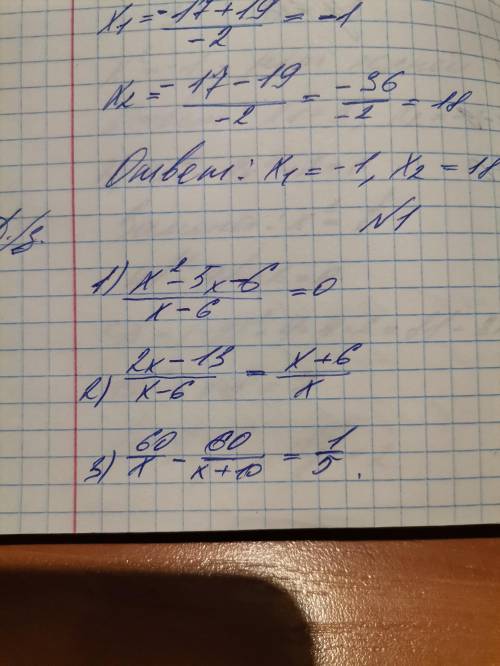 x₁ = -17+19/-2 = -1
x₂ = -17-19/-2 = -36/-2 = 18
Ответ: x₁ = -1, x₂ = 18
Д./з.
№1
1) x²-5x-6/x-6 = 0
2) 2x-13/x-6 = x+6/x
3) 60/x - 60/x+10 = 1/5.